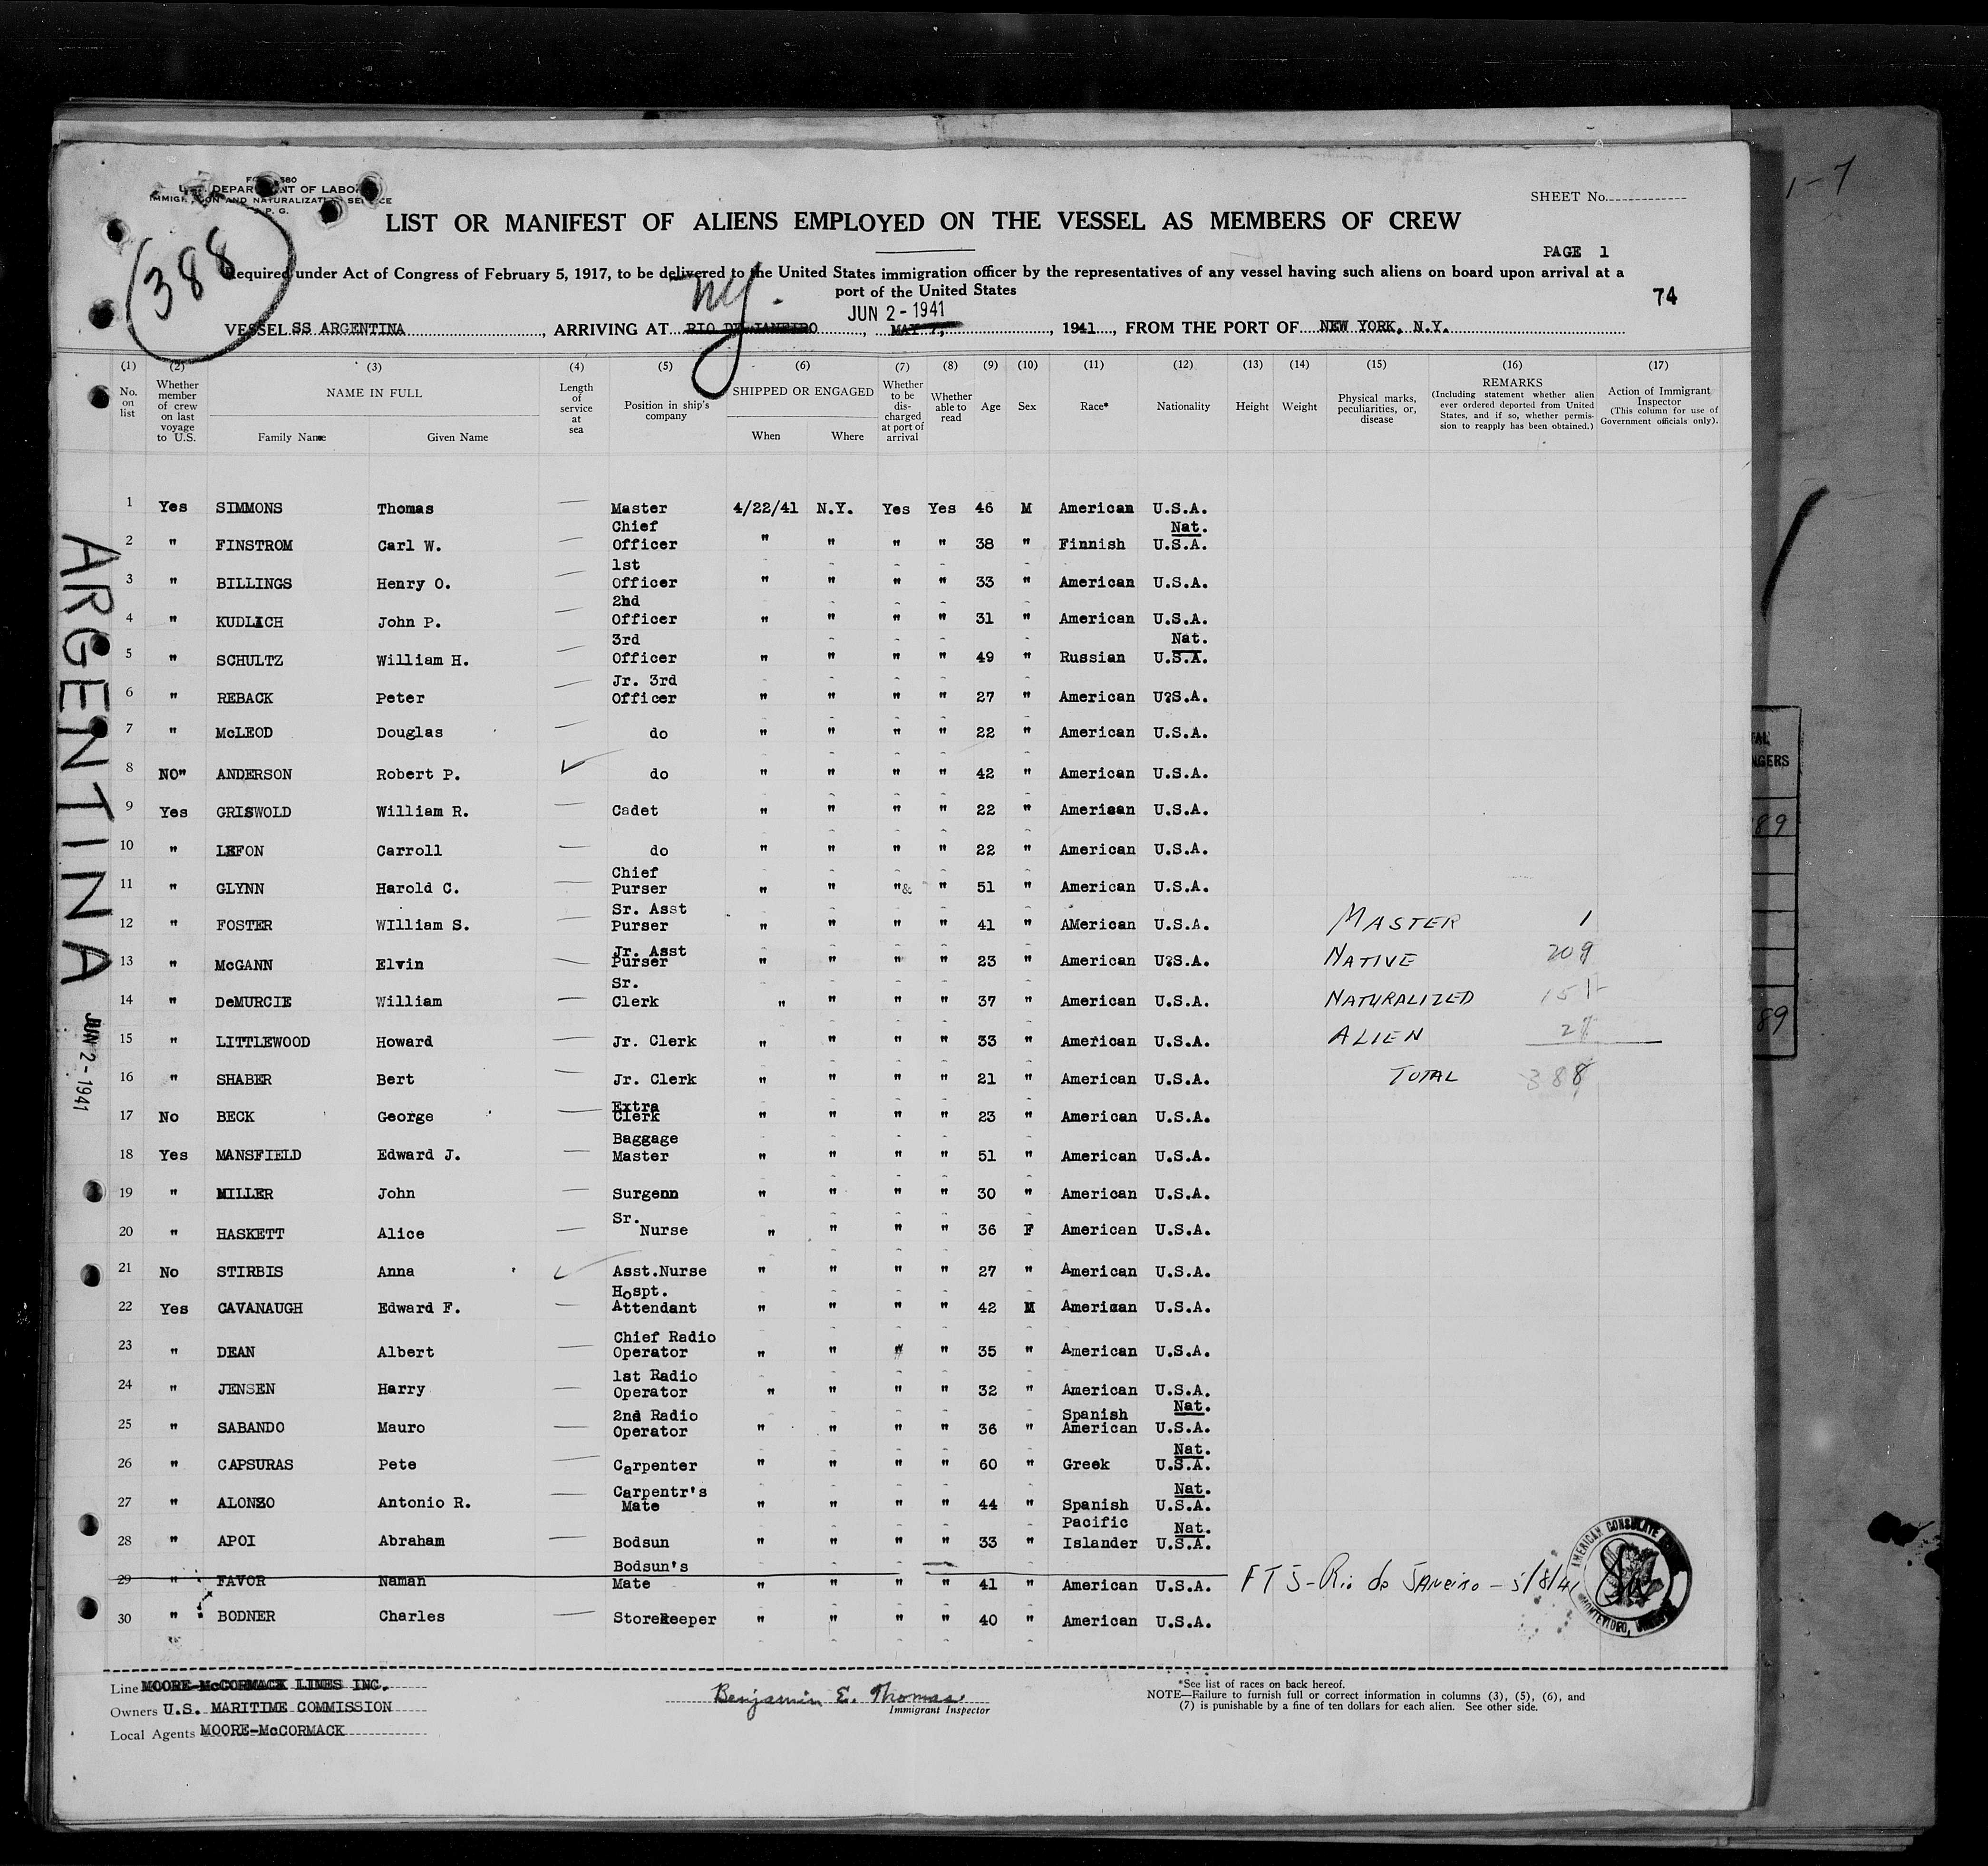 FORM 680
U.S. DEPARTMENT OF LABOR
IMMIGRATION AND NATURALIZATION SERVICE
P. G.
SHEET No.
LIST OR MANIFEST OF ALIENS EMPLOYED ON THE VESSEL AS MEMBERS OF CREW
PAGE 1
388
Required under Act of Congress of February 5, 1917, to be delivered to the United States immigration officer by the representatives of any vessel having such aliens on board upon arrival at a
port of the United States
74
ny.
JUN 2 - 1941
VESSEL SS ARGENTINA, ARRIVING AT RIO DE JANEIRO, MAY 7, 1941, FROM THE PORT OF NEW YORK, N.Y.
(1) (2) (3) (4) (5) (6) (7) (8) (9) (10) (11) (12) (13) (14) (15) (16) (17)
No. on list
Whether member of crew on last voyage to U.S.
NAME IN FULL
Family Name Given Name
Length of service at sea
Position in ship's company
SHIPPED OR ENGAGED
When Where
Whether to be discharged at port of arrival
Whether able to read
Age
Sex
Race*
Nationality
Height
Weight
Physical marks, peculiarities, or, disease
REMARKS
(Including statement whether alien ever ordered deported from United States, and if so, whether permission to reapply has been obtained.)
Action of Immigrant Inspector
(This column for use of Government officials only).
1 Yes SIMMONS Thomas — Master 4/22/41 N.Y. Yes Yes 46 M American U.S.A.
2 " FINSTROM Carl W. — Chief Officer " " " " 38 " Finnish Nat. U.S.A.
3 " BILLINGS Henry O. — 1st Officer " " " " 33 " American U.S.A.
4 " KUDLICH John P. — 2hd Officer " " " " 31 " American U.S.A.
5 " SCHULTZ William H. — 3rd Officer " " " " 49 " Russian Nat. U.S.A.
6 " REBACK Peter — Jr. 3rd Officer " " " " 27 " American U?S.A.
7 " McLEOD Douglas — do " " " " 22 " American U.S.A.
8 NO" ANDERSON Robert P. ✓ do " " " " 42 " American U.S.A.
9 Yes GRISWOLD William R. — Cadet " " " " 22 " Ameriaan U.S.A.
10 " LEFON Carroll — do " " " " 22 " American U.S.A.
11 " GLYNN Harold C. — Chief Purser " " "& " 51 " American U.S.A.
12 " FOSTER WIlliam S. — Sr. Asst Purser " " " " 41 " AMerican U.S.A.
13 " McGANN Elvin — Jr. Asst Purser " " " " 23 " American U?S.A.
14 " DeMURCIE William — Sr. Clerk " " " " 37 " American U.S.A.
15 " LITTLEWOOD Howard — Jr. Clerk " " " " 33 " American U.S.A.
16 " SHABER Bert — Jr. Clerk " " " " 21 " American U.S.A.
17 No BECK George — Extra Clerk " " " " 23 " American U.S.A.
18 Yes MANSFIELD Edward J. — Baggage Master " " " " 51 " American U.S.A.
19 " MILLER John — Surgenn " " " " 30 " American U.S.A.
20 " HASKETT Alice — Sr. Nurse " " " " 36 F American U.S.A.
21 No STIRBIS Anna ✓ Asst.Nurse " " " " 27 " American U.S.A.
22 Yes CAVANAUGH Edward F. — Hospt. Attendant " " " " 42 M American U.S.A.
23 " DEAN Albert — Chief Radio Operator " " " " 35 " American U.S.A.
24 " JENSEN Harry — 1st Radio Operator " " " " 32 " American U.S.A.
25 " SABANDO Mauro — 2nd Radio Operator " " " " 36 " Spanish American Nat. U.S.A.
26 " CAPSURAS Pete — Carpenter " " " " 60 " Greek Nat. U.S.A.
27 " ALONZO Antonio R. — Carpentr's Mate " " " " 44 " Spanish Nat. U.S.A.
28 " APOI Abraham — Bodsun " " " " 33 " Pacific Islander Nat. U.S.A.
29 " FAVOR Naman Bodsun's Mate " " " " 41 " American U.S.A. FTJ - Rio do Janeiro - 5/8/41
30 " BODNER Charles — Storekeeper " " " " 40 " American U.S.A.
MASTER 1
NATIVE 209
NATURALIZED 151
ALIEN 27
TOTAL 388
ARGENTINA
JUN 2 - 1941
AMERICAN CONSULATE
MONTEVIDEO, URUGUAY
Line MOORE-McCORMACK LINES INC.
Owners U.S. MARITIME COMMISSION
Local Agents MOORE-McCORMACK
Benjamin E. Thomas.
Immigrant Inspector
*See list of races on back hereof.
NOTE—Failure to furnish full or correct information in columns (3), (5), (6), and
(7) is punishable by a fine of ten dollars for each alien. See other side.
89
89